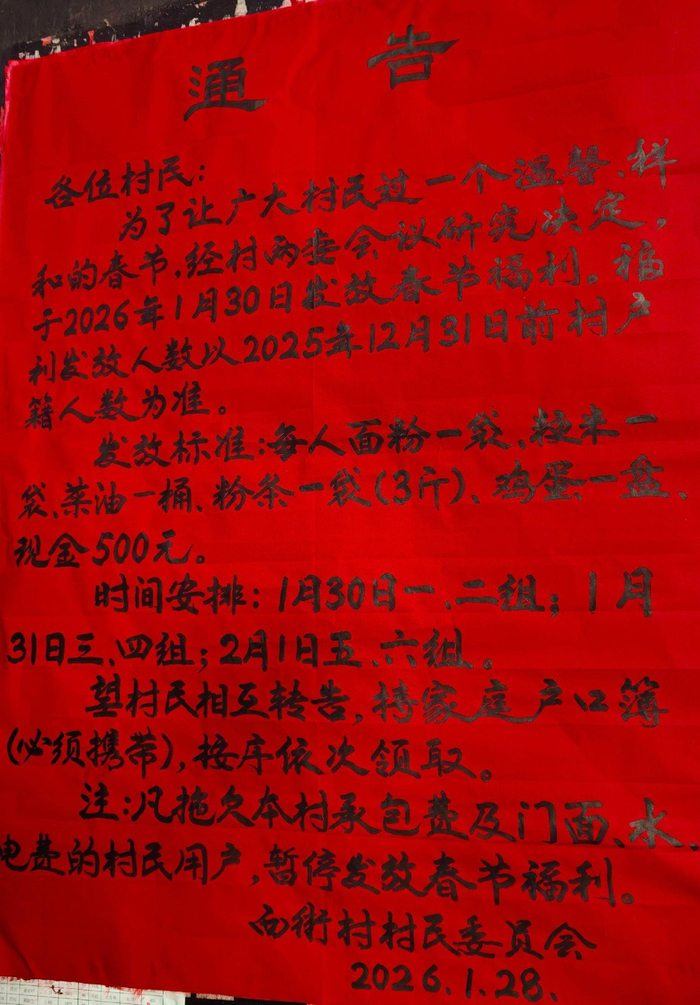 通告
各位村民：
为了让广大村民过一个温馨、祥
和的春节，经村两委会议研究决定，
于2026年1月30日发放春节福利。福
利发放人数以2025年12月31日前村户
籍人数为准。
发放标准：每人面粉一袋、粳米一
袋、菜油一桶、粉条一袋（3斤）、鸡蛋一盘、
现金500元。
时间安排：1月30日一、二组；1月
31日三、四组；2月1日五、六组。
望村民相互转告，持家庭户口簿
（必须携带），按序依次领取。
注：凡拖欠本村承包费及门面、水、
电费的村民用户，暂停发放春节福利。
西街村村民委员会
2026.1.28.